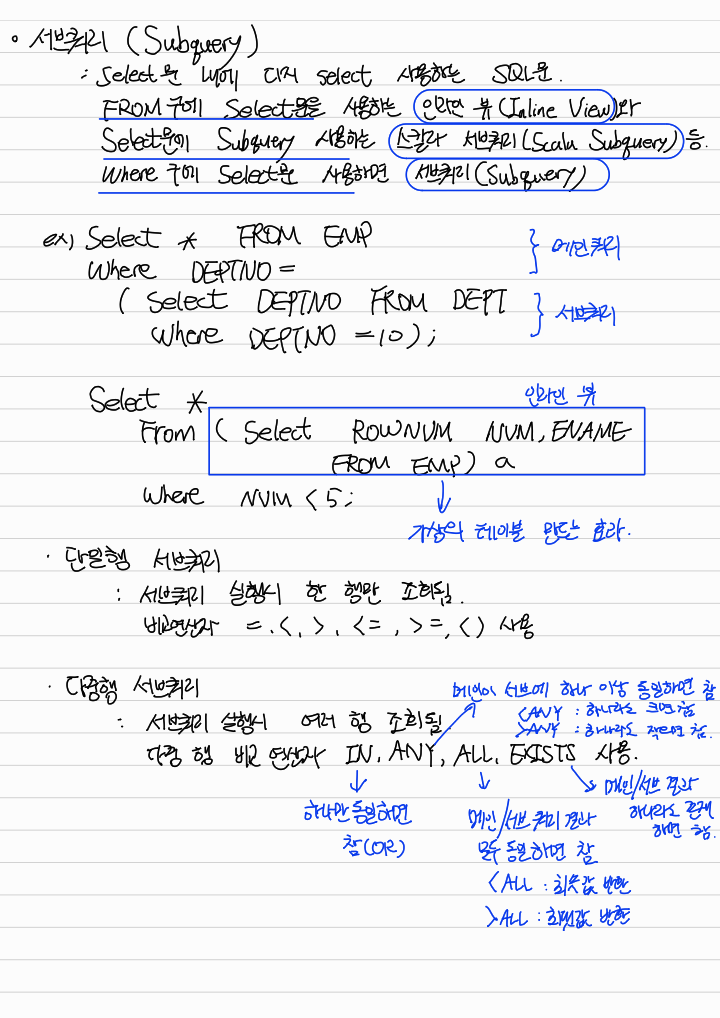 ° 서브쿼리 (Subquery)
: Select문 내에 다시 select 사용하는 SQL문.
FROM구에 Select문을 사용하는 인라인 뷰(Inline View)와
Select문에 Subquery 사용하는 스칼라 서브쿼리(Scala Subquery) 등.
Where 구에 Select문 사용하면 서브쿼리(Subquery)
ex) Select * FROM EMP
Where DEPTNO =
} 메인쿼리
( Select DEPTNO FROM DEPT
Where DEPTNO =10);
} 서브쿼리
Select *
인라인 뷰
From ( Select ROWNUM NUM, ENAME
FROM EMP) a
Where NUM < 5;
가상의 테이블 만드는 효과.
· 단일행 서브쿼리
: 서브쿼리 실행시 한 행만 조회됨.
비교연산자 =, <, >, <=, >=, <> 사용
· 다중행 서브쿼리
메인이 서브에 하나 이상 동일하면 참
<ANY : 하나라도 크면 참
>ANY : 하나라도 작으면 참.
: 서브쿼리 실행시 여러 행 조회됨.
다중 행 비교 연산자 IN, ANY, ALL, EXISTS 사용.
하나만 동일하면
참(OR)
메인/서브 쿼리 결과
모두 동일하면 참
<ALL : 최솟값 반환
>ALL : 최댓값 반환
메인/서브 결과
하나라도 존재
하면 참.